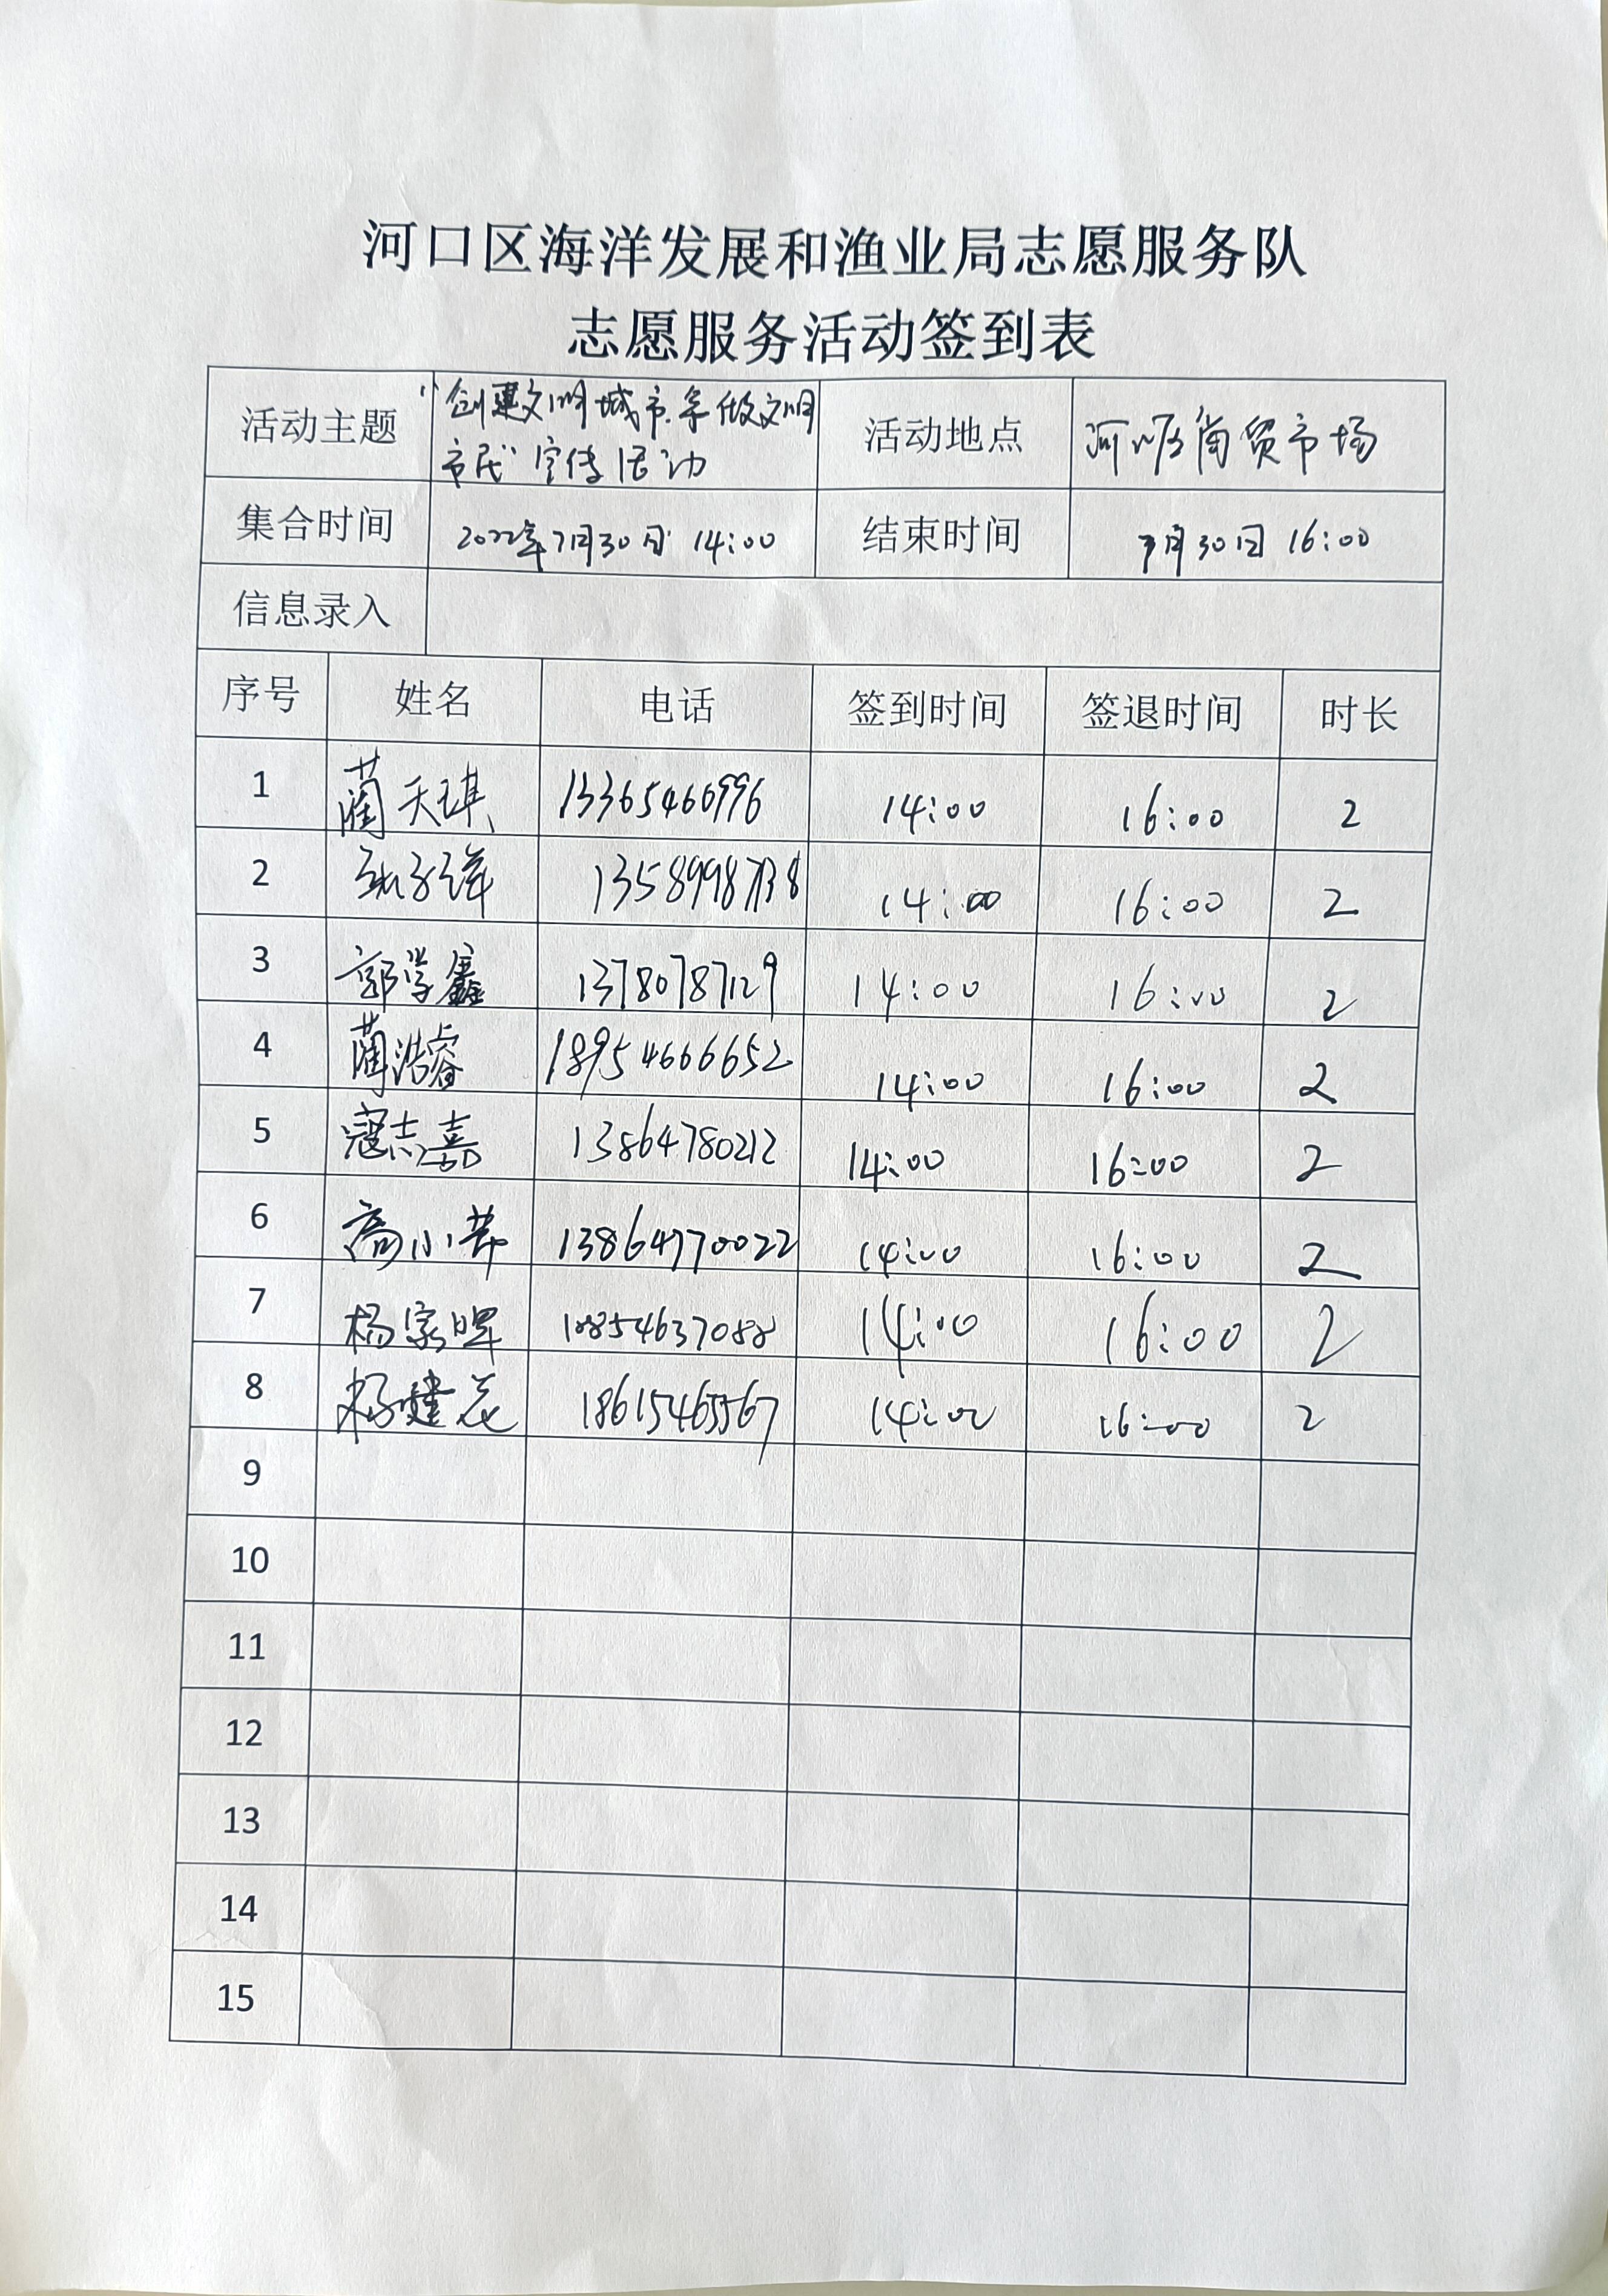 河口区海洋发展和渔业局志愿服务队
志愿服务活动签到表
活动主题 "创建文明城市.争做文明 活动地点 商贸市场
市民"宣传活动
集合时间 2022年7月30日 14:00 结束时间 7月30日 16:00
信息录入
序号 姓名 电话 签到时间 签退时间 时长
1 蔺天琪 13365466996 14:00 16:00 2
2 13589987138 14:00 16:00 2
3 郭学鑫 13780787129 14:00 16:00 2
4 蔺浩睿 18954666652 14:00 16:00 2
5 寇志嘉 13864780212 14:00 16:00 2
6 高小 13864770022 14:00 16:00 2
7 杨家晖 18854637088 14:00 16:00 2
8 杨建花 18615465567 14:00 16:00 2
9
10
11
12
13
14
15